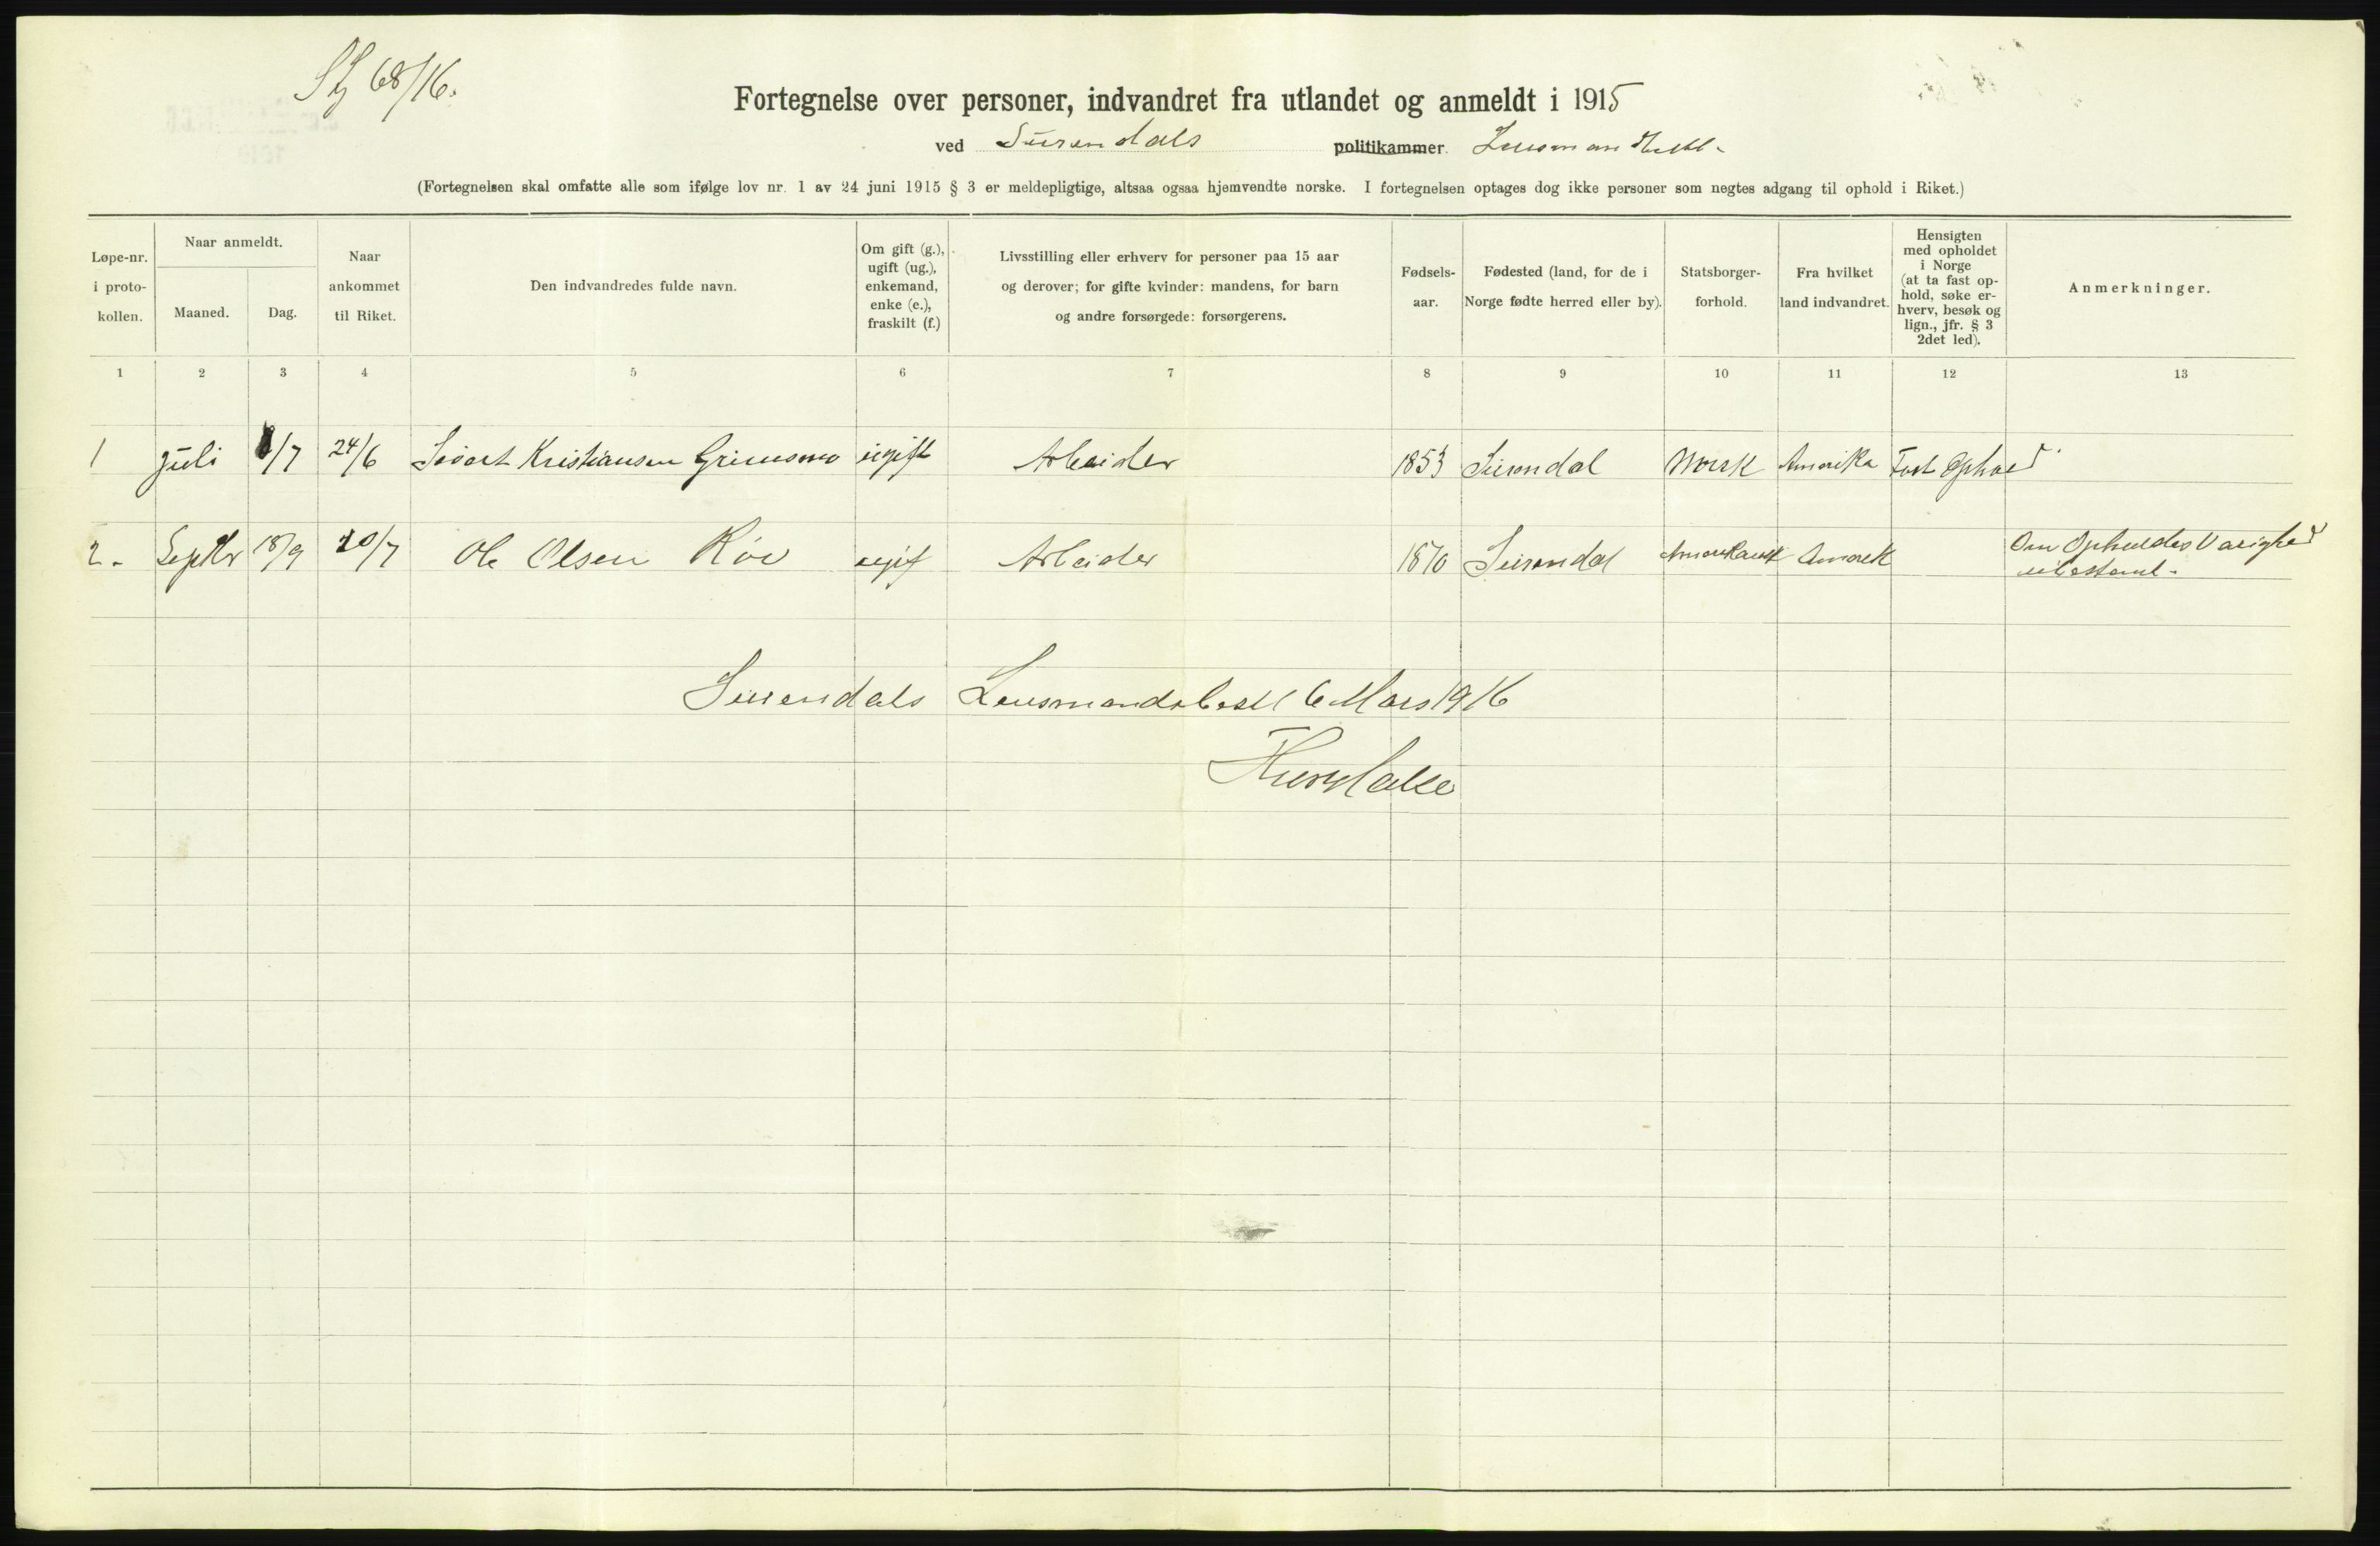 68/16.
Fortegnelse over personer, indvandret fra utlandet og anmeldt i 1915
ved Surendals politikammer.
(Fortegnelsen skal omfatte alle som ifølge lov nr. 1 av 24 juni 1915 § 3 er meldepligtige, altsaa ogsaa hjemvendte norske. I fortegnelsen optages dog ikke personer som negtes adgang til ophold i Riket.)
Løpe-nr.
i proto-
kollen.
Naar anmeldt.
Maaned.
Dag.
Naar
ankommet
til Riket.
Den indvandredes fulde navn.
Om gift (g.),
ugift (ug.),
enkemand,
enke (e.),
fraskilt (f.)
Livsstilling eller erhverv for personer paa 15 aar
og derover; for gifte kvinder: mandens, for barn
og andre forsørgede: forsørgerens.
Fødsels-
aar.
Fødested (land, for de i
Norge fødte herred eller by).
Statsborger-
forhold.
Fra hvilket
land indvandret.
Hensigten
med opholdet
i Norge
(at ta fast op-
hold, søke er-
hverv, besøk og
lign., jfr. § 3
2det led).
Anmerkninger.
1 2 3 4 5 6 7 8 9 10 11 12 13
1 Juli /7 24/6 Sivert Kristiansen Grimsmo ugift Arbeider 1853 Surendal Norsk Amerika Fast Ophold
2. Septbr 18/9 20/7 Ole Olsen Røv ugif Arbeider 1870 Surendal Amerikansk Amerik Om Opholdes Varighed
ubestemt.
Surendals Lensmandsbest 6 Mars 1916
Halse